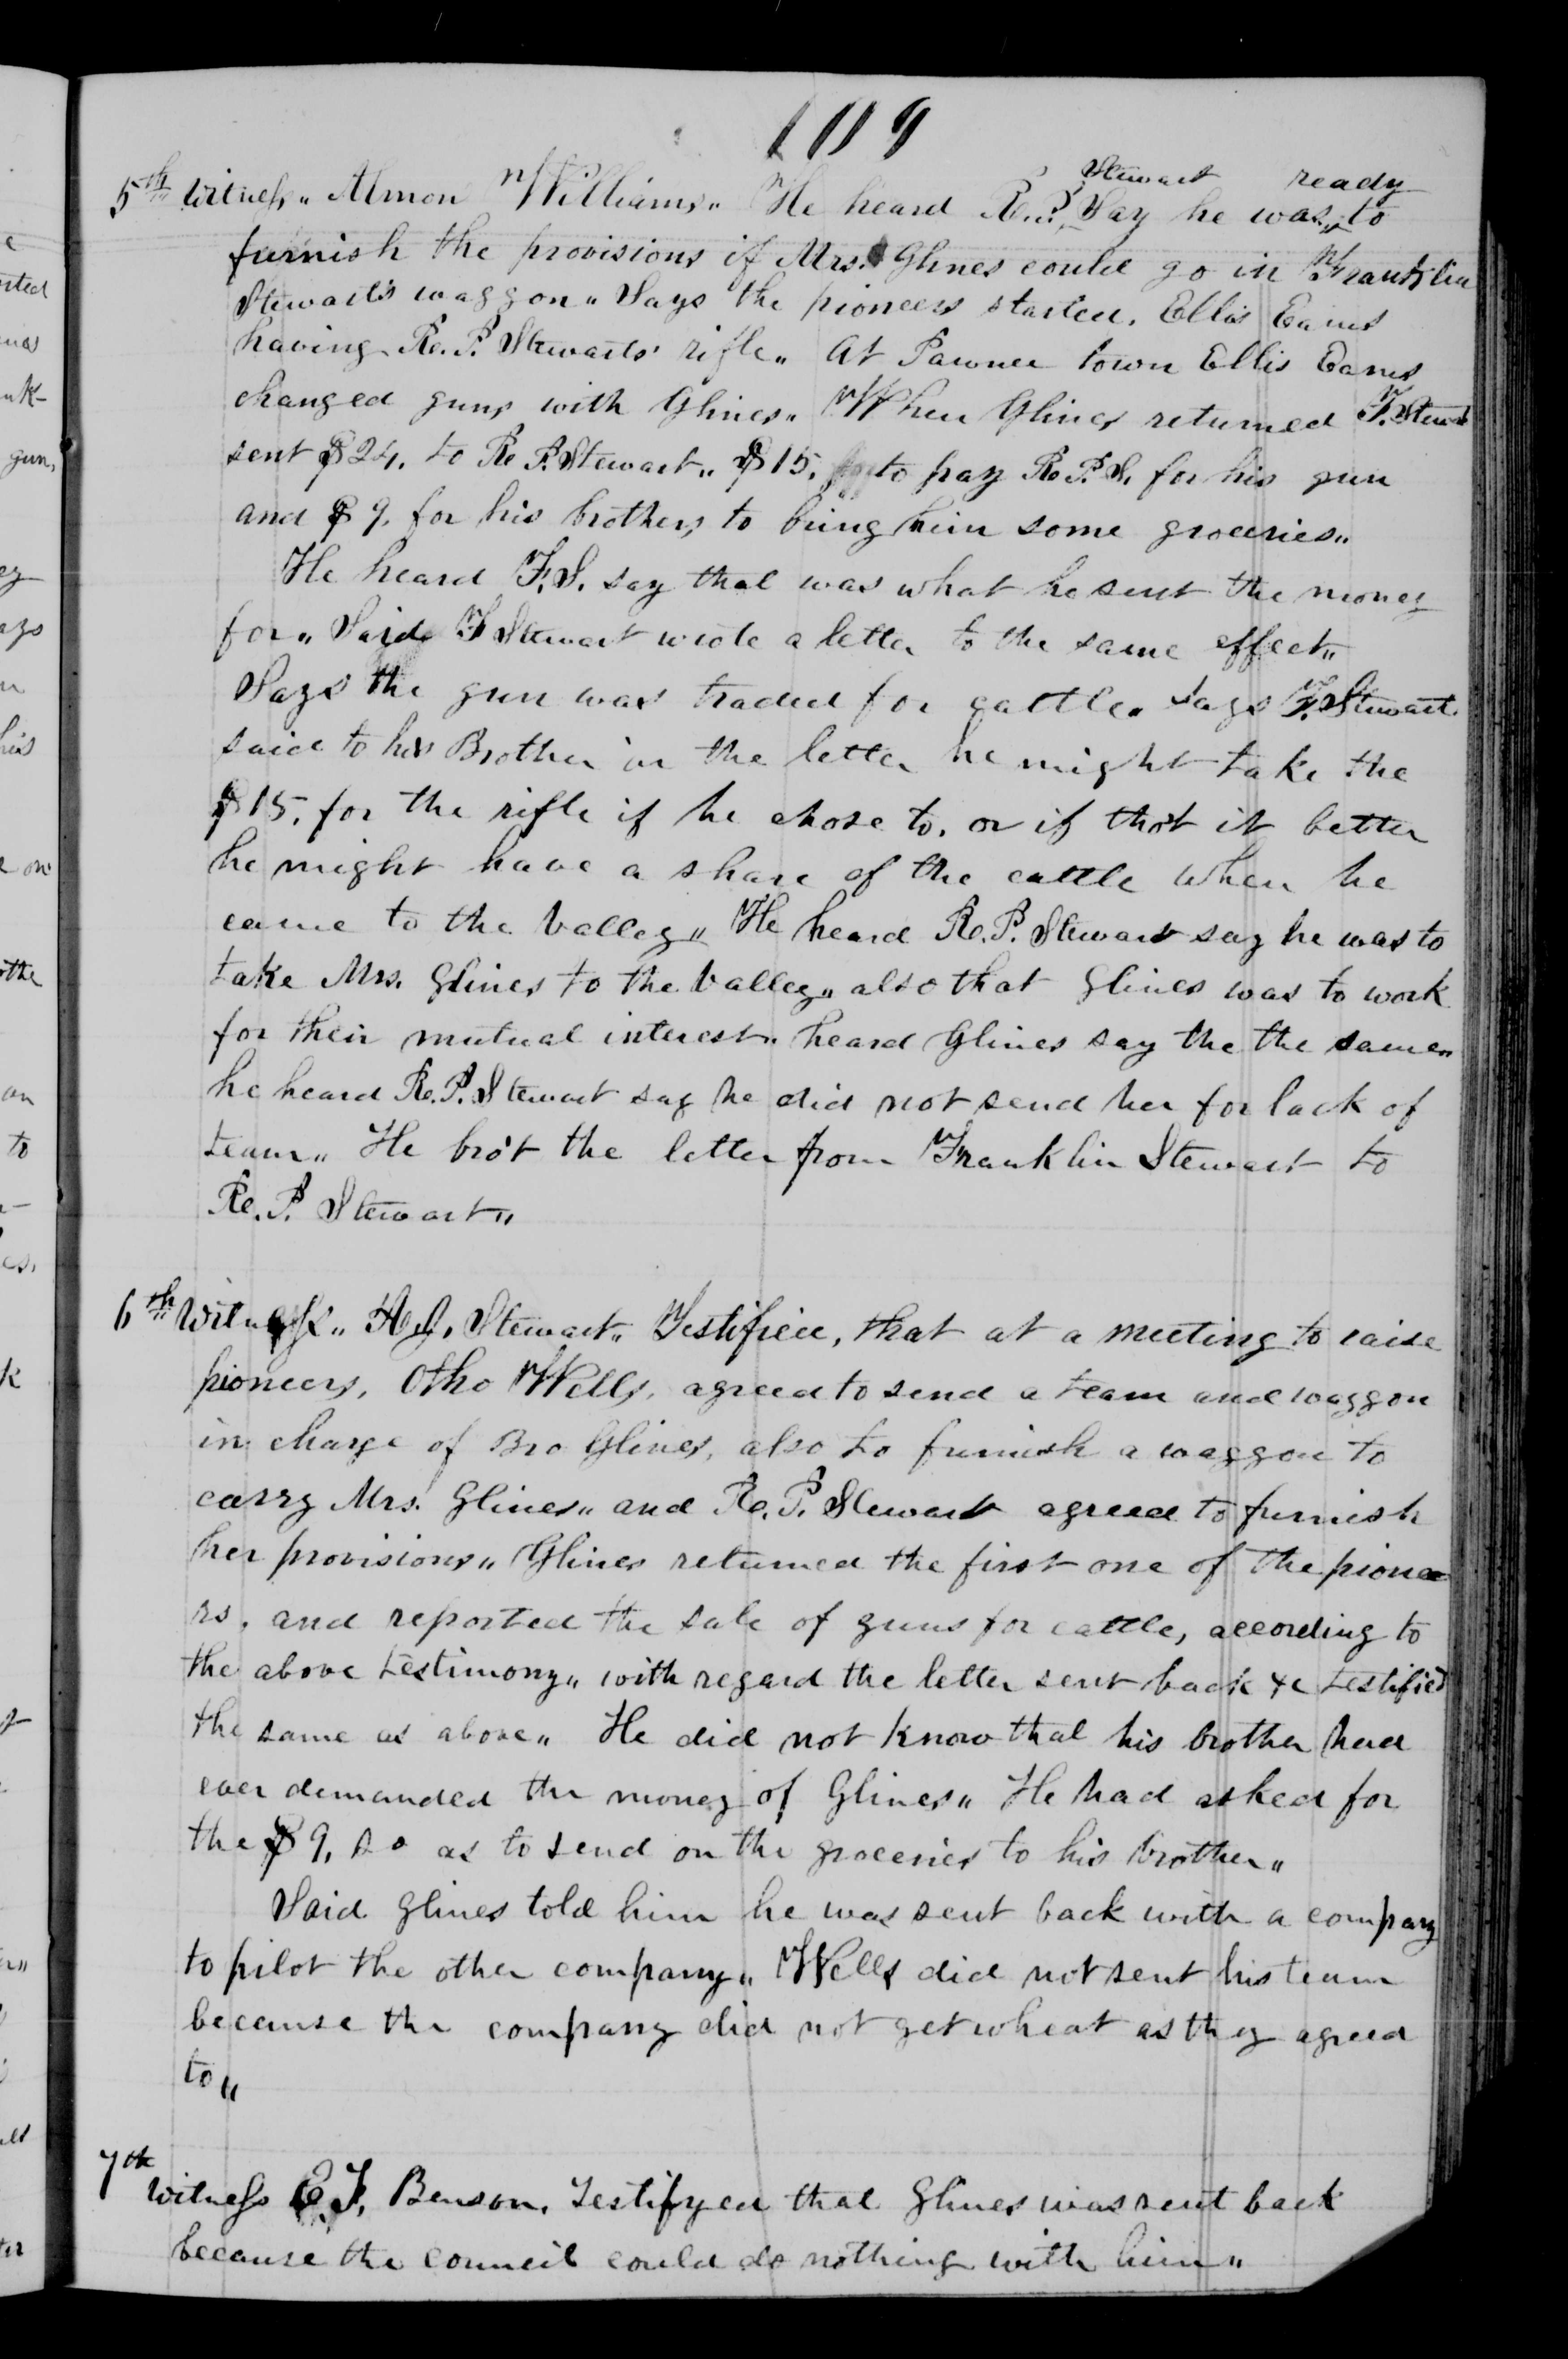 109
5th witness„ Almon Williams„ He heard R. P. Stewart Say he was ready to
furnish the provisions if Mrs. Glines could go in Franklin
Stewart's waggon„ Says the pioneers started, Ellis Eames
having R. P. Stewarts' rifle„ At Pawnee town Ellis Eames
changed guns with Glines„ When Glines returned F. Stewart
sent $24. to R. P. Stewart„ $15. to pay R. P. S. for his gun
and $9. for his brother, to bring him some groceries„
He heard F. S. say that was what he sent the money
for„ Said F Stewart wrote a letter to the same effect„
Says the gun was traded for cattle„ Says F. Stewart
said to his Brother in the letter he might take the
$15. for the rifle if he chose to, or if tho't it better
he might have a share of the cattle when he
came to the Valley„ He heard R. P. Stewart say he was to
take Mrs. Glines to the Valley„ also that Glines was to work
for their mutual interest„ heard Glines say the the same„
he heard R. P. Stewart say he did not send her for lack of
team„ He bro't the letter from Franklin Stewart to
R. P. Stewart„
6th Witness„ Stewart„ Testified, that at a meeting to raise
pioneers, Otho Wells, agreed to send a team and waggon
in charge of Bro Glines, also to furnish a waggon to
carry Mrs. Glines„ and R. P. Stewart agreed to furnish
her provisions„ Glines returned the first one of the pionee
rs, and reported the sale of guns for cattle, according to
the above testimony„ with regard the letter sent back &c testified
the same as above„ He did not know that his brother had
ever demanded the money of Glines„ He had asked for
the $9, so as to send on the groceries to his brother„
Said Glines told him he was sent back with a company
to pilot the other company„ Wells did not sent his team
because the company did not get wheat as they agreed
to„
7th
witness Benson, Testifyed that Glines was sent back
because the council could do nothing with him„